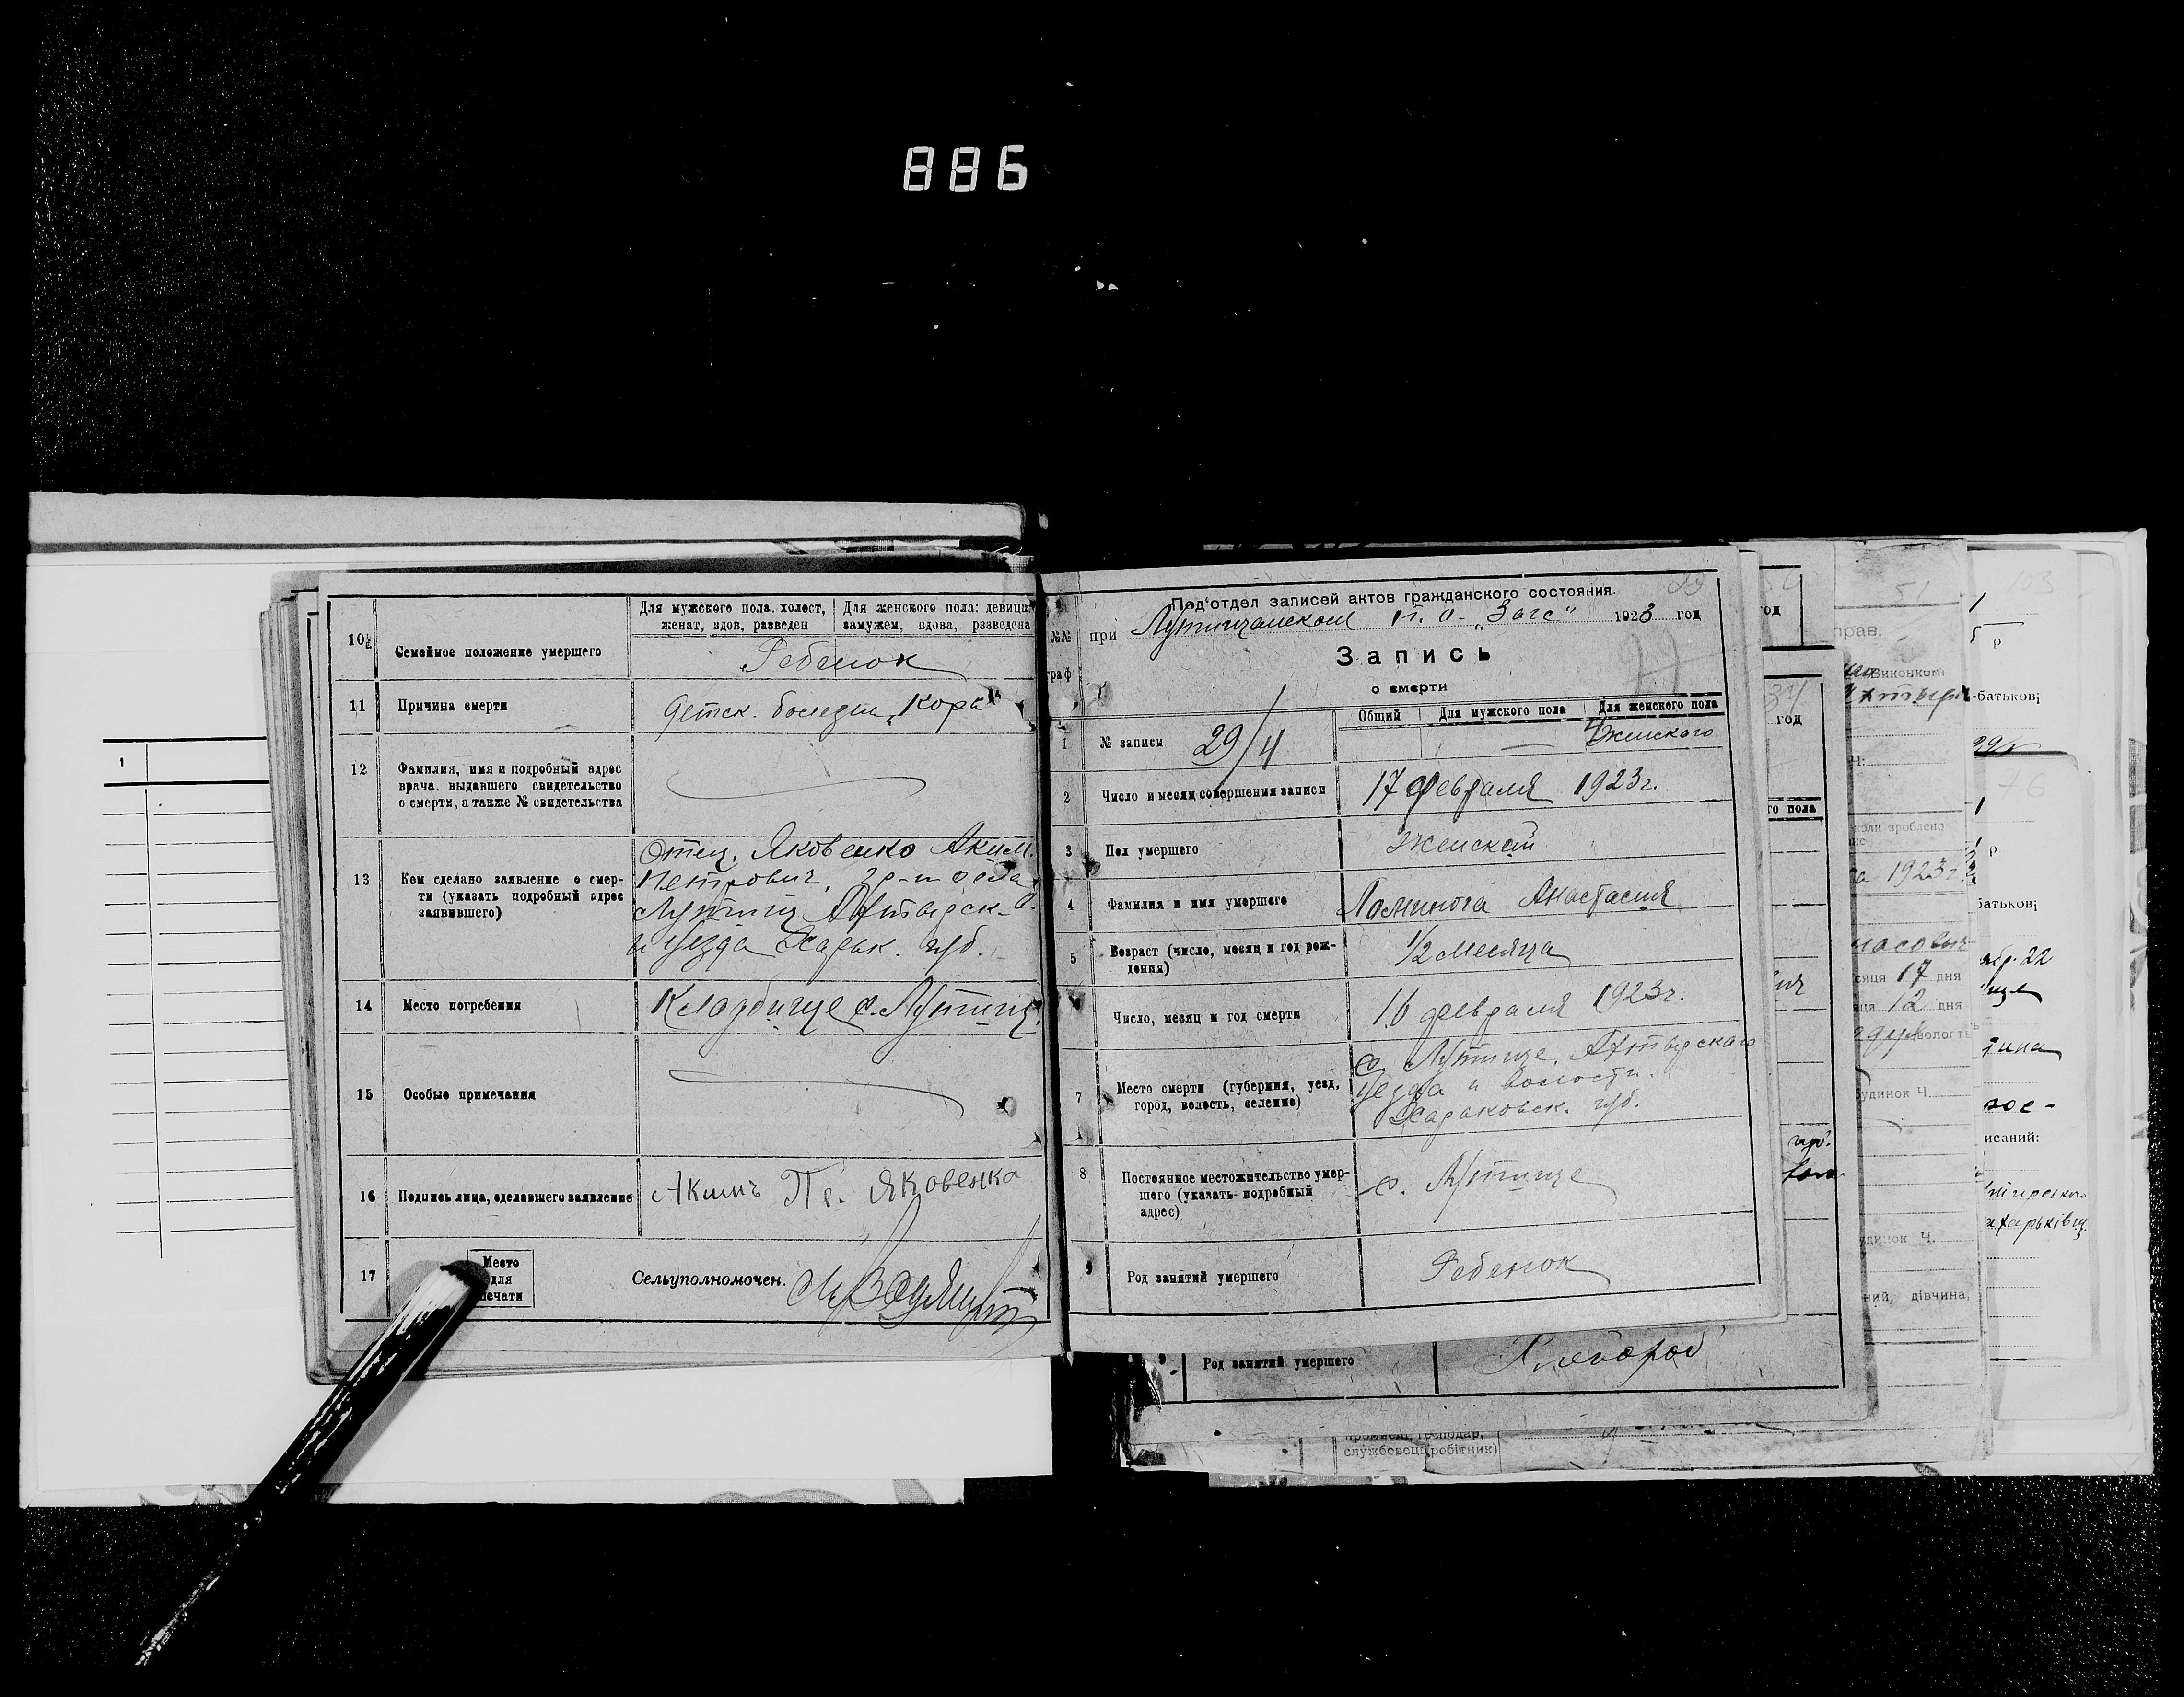 886
10
Семейное положение умершего
Для мужского пола. холост, женат, вдов, разведен
Для женского пола: девица, замужем, вдова, разведена
Ребенок
11
Причина смерти
Детск. болезнь „Корь“
12
Фамилия, имя и подробный адрес
врача, выдавшего свидетельство
о смерти, а также № свидетельства
13
Кем сделано заявление о смер-
ти (указать подробный адрес
заявившего)
Отец. Яковенко Аким
Петрович, гр-н села
Лутищ Ахтырск.
и уезда Харьк. губ.
14
Место погребения
Кладбище с. Лутищ
15
Особые примечания
16
Подпись лица, сделавшего заявление
Акимъ Пе. Яковенко
17
Место
для
печати
Сельуполномочен.
Под'отдел записей актов гражданского состояния.
№№
граф
при
п. о. „Загс“ 1923 год
Запись
о смерти
Общий
Для мужского пола
Для женского пола
1
№ записи
29/4
Женского
2
Число и месяц совершения записи
17 февраля 1923г.
3
Пол умершего
Женский
4
Фамилия и имя умершего
Анастасия
5
Возраст (число, месяц и год рож-
дения)
1/2 месяца
Число, месяц и год смерти
16 февраля 1923г.
7
Место смерти (губерния, уезд,
город, волость, селение)
с. Лутище, Ахтырского
уезда и волости.
Харьковск. губ.
8
Постоянное местожительство умер-
шего (указать подробный
адрес)
с. Лутище
9
Род занятий умершего
Ребенок
Род занятий умершего
Хлебороб
службовець (робітник)
год
34
год
го пола
губ.
51
прав.
Виконком
коли зроблено
1923
сяця 17 дня
яця 12 дня
волость
будинок Ч.
удинок Ч.
ний, дівчина,
103
р
-батькові
76
р.
батькові
22
писаний:
1